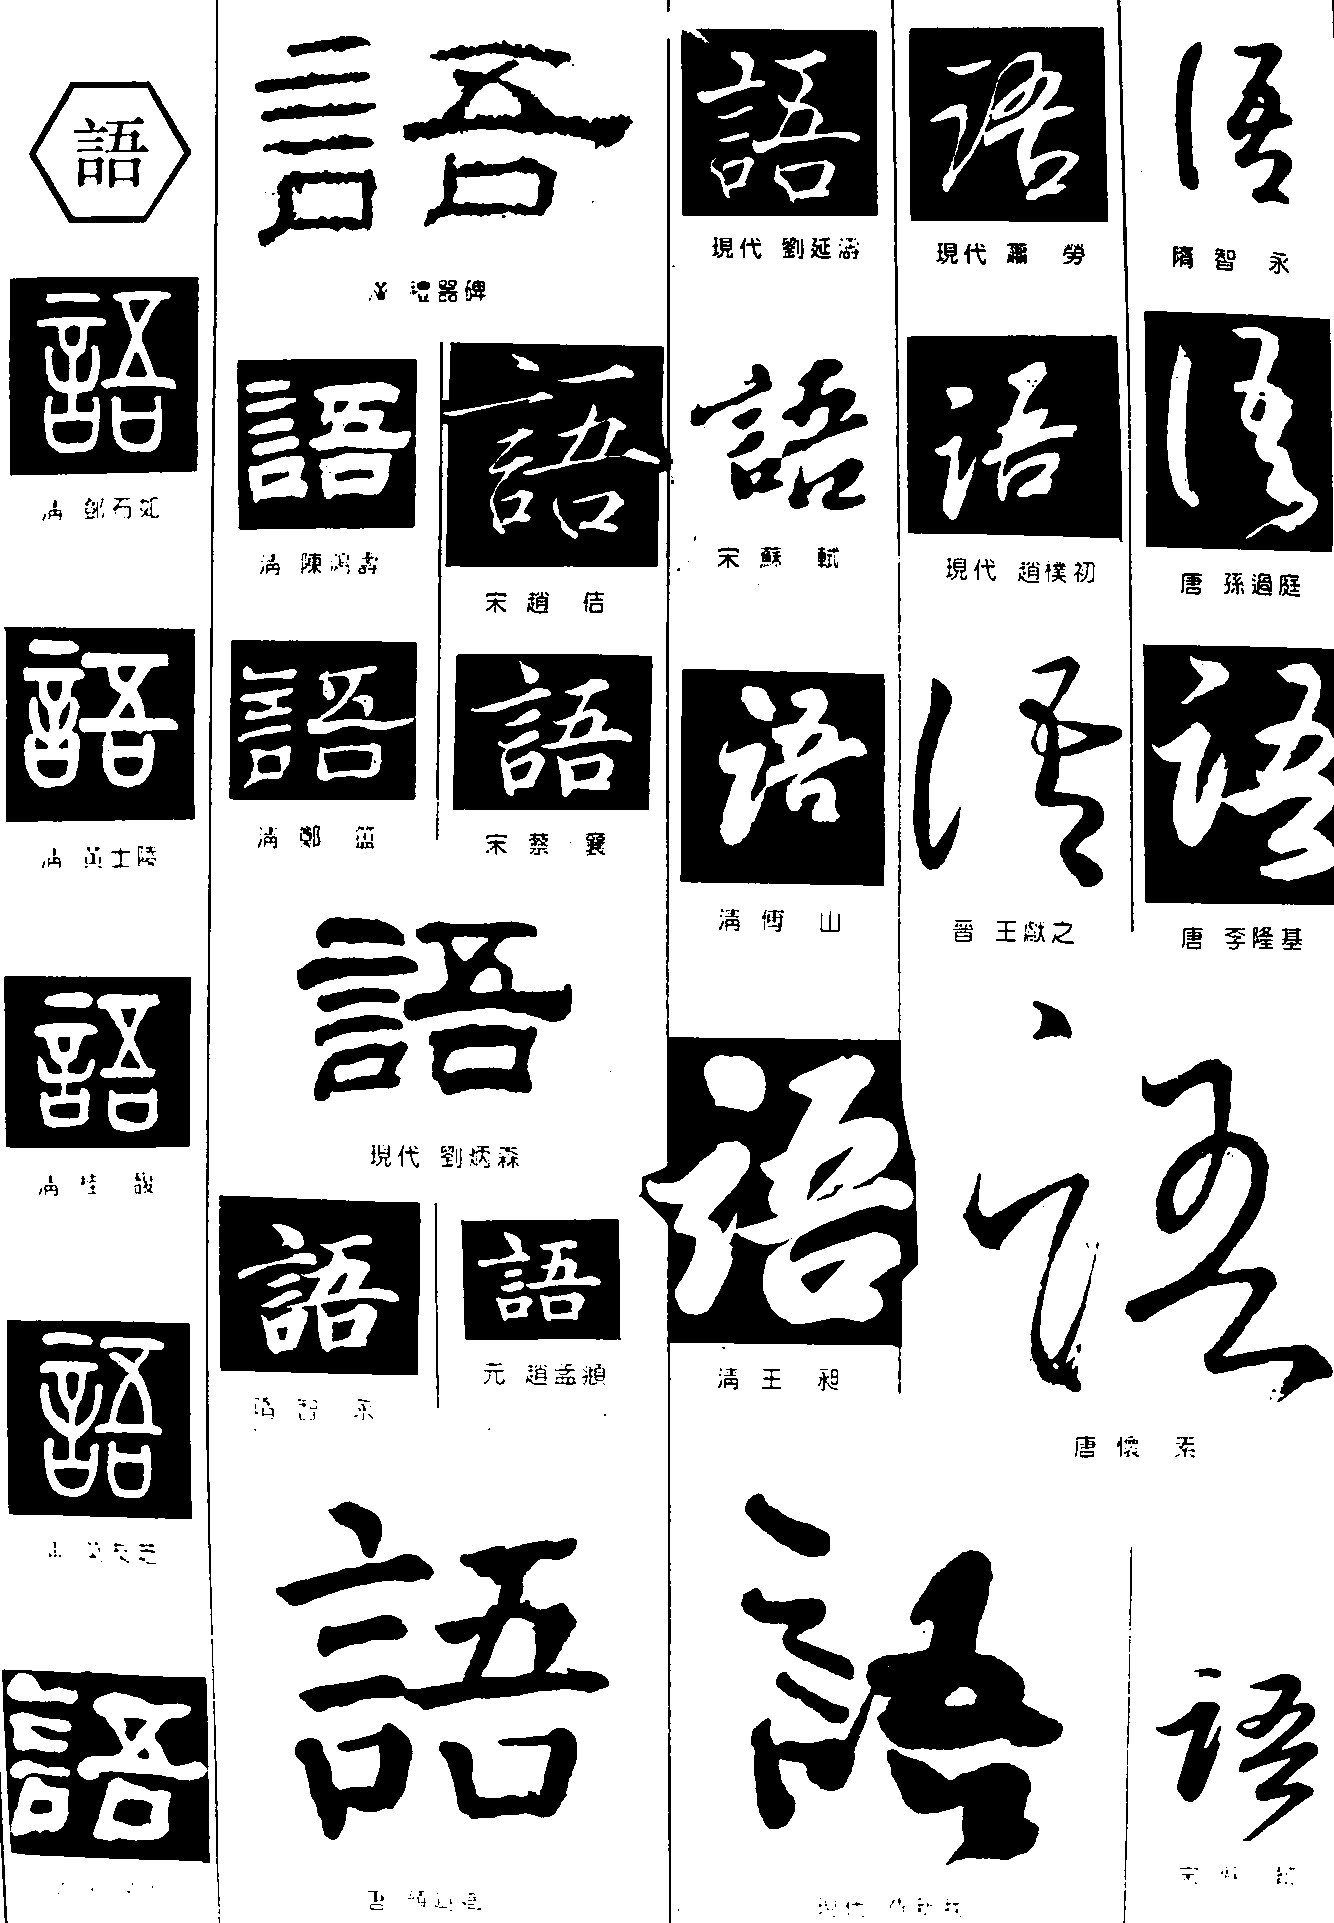 語
語
清 鄧石如
語
清 黃士陵
語
清 桂 馥
語
語
語
漢 禮器碑
語
清 陳鴻壽
語
宋 趙 佶
語
清 鄭 簠
語
宋 蔡 襄
語
現代 劉炳森
語
隋 智 永
語
元 趙孟頫
語
唐 顏真卿
語
現代 劉延濤
語
宋 蘇 軾
語
清 傅 山
語
清 王 昶
語
現代 蕭 勞
語
現代 趙樸初
語
晉 王獻之
語
隋 智 永
語
唐 孫過庭
語
唐 李隆基
語
唐 懷 素
語
語